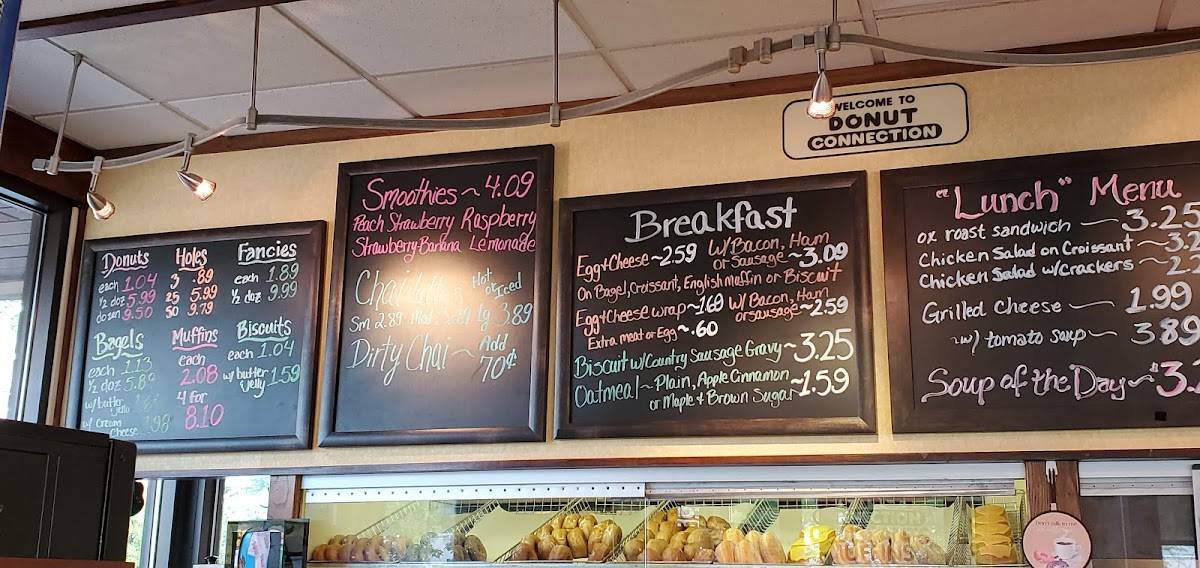 WELCOME TO
DONUT
CONNECTION
Donuts
each 1.04
½ doz 5.99
dozen 9.50
Holes
3 .89
25 5.99
50 9.79
Fancies
each 1.89
½ doz 9.99
Bagels
each 1.13
½ doz 5.89
w/ butter
w/ Cream
Cheese 1.98
Muffins
each
2.08
4 for
8.10
Biscuits
each 1.04
w/ butter
& jelly 1.59
Smoothies ~ 4.09
Peach Strawberry Raspberry
Strawberry-Banana Lemonade
Chai Hot
or Iced
Sm 2.89 lg 3.89
Dirty Chai ~ Add
70¢
Breakfast
Egg+Cheese ~ 2.59 W/Bacon, Ham
or Sausage ~ 3.09
On Bagel, Croissant, English muffin or Biscuit
Egg+Cheese wrap ~ 1.68 W/ Bacon, Ham
or sausage ~ 2.59
Extra meat or Egg ~ .60
Biscuit w/Country Sausage Gravy ~ 3.25
Oatmeal ~ Plain, Apple Cinnamon
or Maple + Brown Sugar ~ 1.59
"Lunch" Menu
ox roast sandwich — 3.25
Chicken Salad on Croissant ~
Chicken Salad w/Crackers ~
Grilled Cheese — 1.99
~w/ tomato soup ~ 3.89
Soup of the Day ~